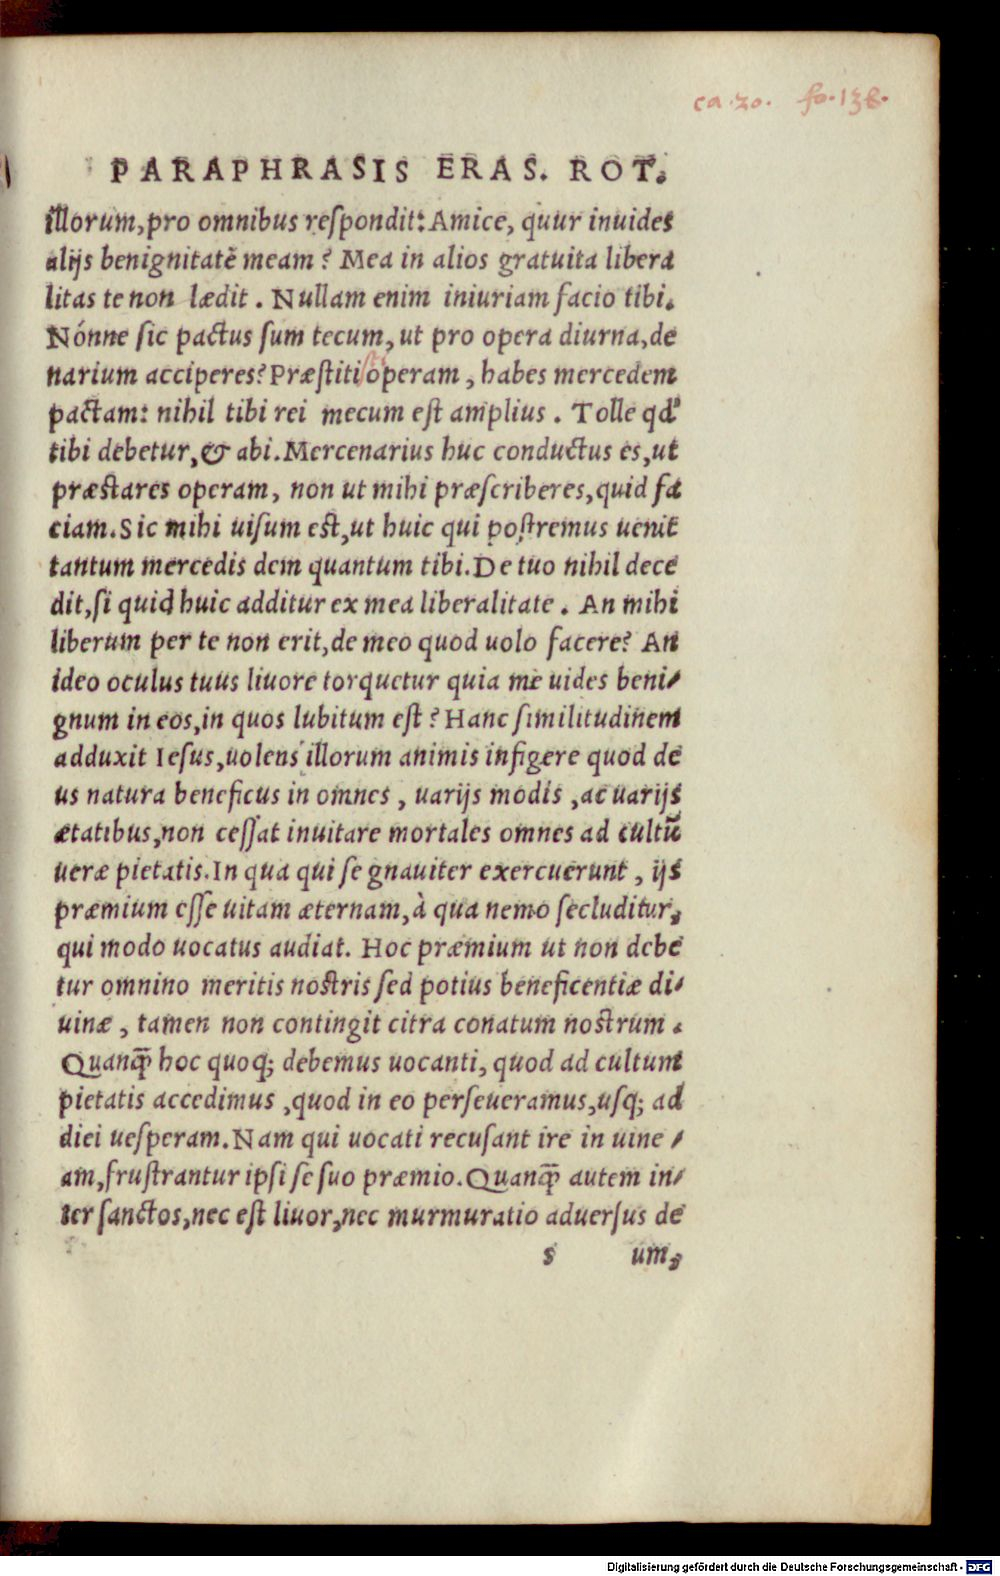 ca. 20. fo. 138.
PARAPHRASIS ERAS. ROT.
illorum, pro omnibus reſpondit: Amice, quur inuides
alijs benignitatē meam? Mea in alios gratuita libera
litas te non lædit. Nullam enim iniuriam facio tibi.
Nónne ſic pactus ſum tecum, ut pro opera diurna, de
narium acciperes? Præſtiti ſti operam, habes mercedem
pactam: nihil tibi rei mecum eſt amplius. Tolle qđ
tibi debetur, & abi. Mercenarius huc conductus es, ut
præſtares operam, non ut mihi præſcriberes, quid fa
ciam. Sic mihi uiſum eſt, ut huic qui poſtremus uenit
tantum mercedis dem quantum tibi. De tuo nihil dece
dit, ſi quid huic additur ex mea liberalitate. An mihi
liberum per te non erit, de meo quod uolo facere? An
ideo oculus tuus liuore torquetur quia me uides beni-
gnum in eos, in quos lubitum eſt? Hanc ſimilitudinem
adduxit Ieſus, uolens illorum animis infigere quod de
us natura beneficus in omnes, uarijs modis, ac uarijs
ætatibus, non ceſſat inuitare mortales omnes ad cultū
ueræ pietatis. In qua qui ſe gnauiter exercuerunt, ijs
præmium eſſe uitam æternam, à qua nemo ſecluditur,
qui modo uocatus audiat. Hoc præmium ut non debe
tur omnino meritis noſtris ſed potius beneficentiæ di-
uinæ, tamen non contingit citra conatum noſtrum.
Quanq̄ hoc quoq; debemus uocanti, quod ad cultum
pietatis accedimus, quod in eo perſeueramus, uſq; ad
diei ueſperam. Nam qui uocati recuſant ire in uine-
am, fruſtrantur ipſi ſe ſuo præmio. Quanq̄ autem in-
ter ſanctos, nec eſt liuor, nec murmuratio aduerſus de
s um,
Digitalisierung gefördert durch die Deutsche Forschungsgemeinschaft - DFG